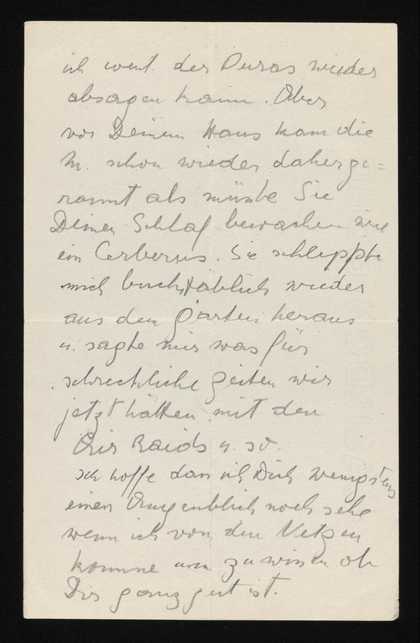 ich event. der Duras wieder
absagen kann. Aber
vor Deinem Haus kam die
M. schon wieder daherge=
rannt als müsste Sie
Deinen Schlaf bewachen wie
ein Cerberus. Sie schleppte
mich buchstäblich wieder
aus den Garten heraus
u. sagte mir was für
schreckliche Zeiten wir
jetzt hätten mit den
Air Raids u. so.
Ich hoffe dass ich Dich wenigstens
einen Augenblick noch sehe
wenn ich von den
komme um zu wissen ob
Dir ganz gut ist.